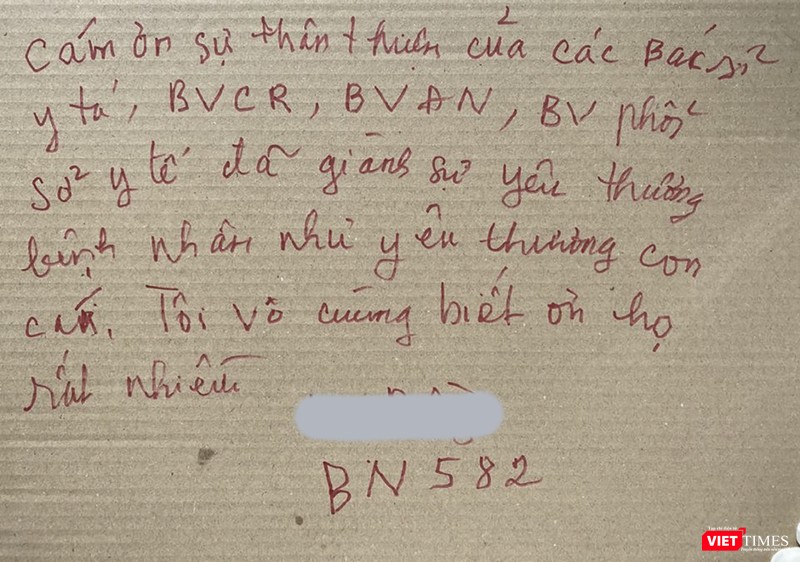 Cám ơn sự thân thiện của các Bác sĩ
y tá, BVCR, BVAN, BV phổi
Sở y tế đã giành sự yêu thương
bệnh nhân như yêu thương con
cái. Tôi vô cùng biết ơn họ
rất nhiều
BN 582
VIETTIMES